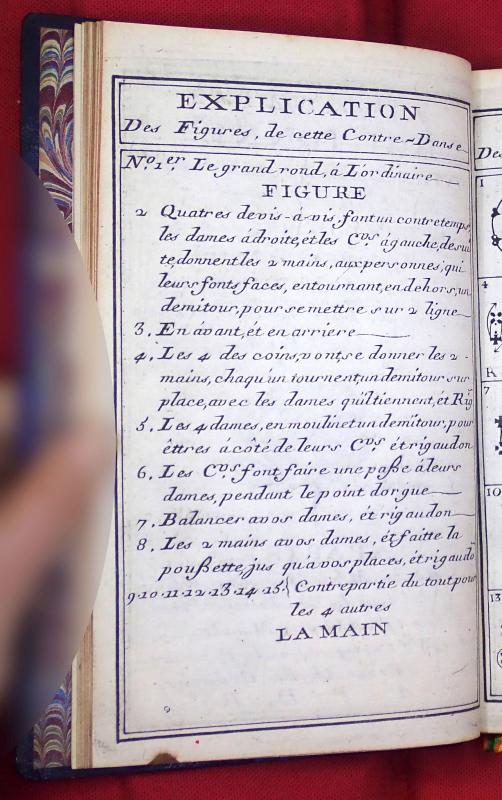 EXPLICATION
Des Figures, de cette Contre~Danse
N.º 1.er Le grand rond, á L'ordinaire
FIGURE
2 Quatres de vis-á-vis, font un contretemps,
les dames ádroite, ét les C.vs ágauche, de sui
te, donnent les 2 mains, aux personnes, qui
leurs fonts faces, en tournant, en dehors, un
demitour, pour se mettre sur 2 ligne
3. En ávant, ét en arriere
4. Les 4 des coins, vont, se donner les 2
mains, chaqu'un tournent, un demitour sur
place, avec les dames qu'iltiennent, ét Rig
5. Les 4 dames, en moulinet un demitour, pour
êttres ácôté de leurs C.vs ét rigaudon
6. Les C.vs font faire une paße áleurs
dames, pendant le point dorgue
7. Balancer avos dames, ét rigaudon
8. Les 2 mains avos dames, ét faitte la
poußette, jus qu'avos places, ét rigaudo
9·10·11·12·13·14·15·{ Contrepartie du tout pour
les 4 autres
LA MAIN
De
1
4
R
7
10
13